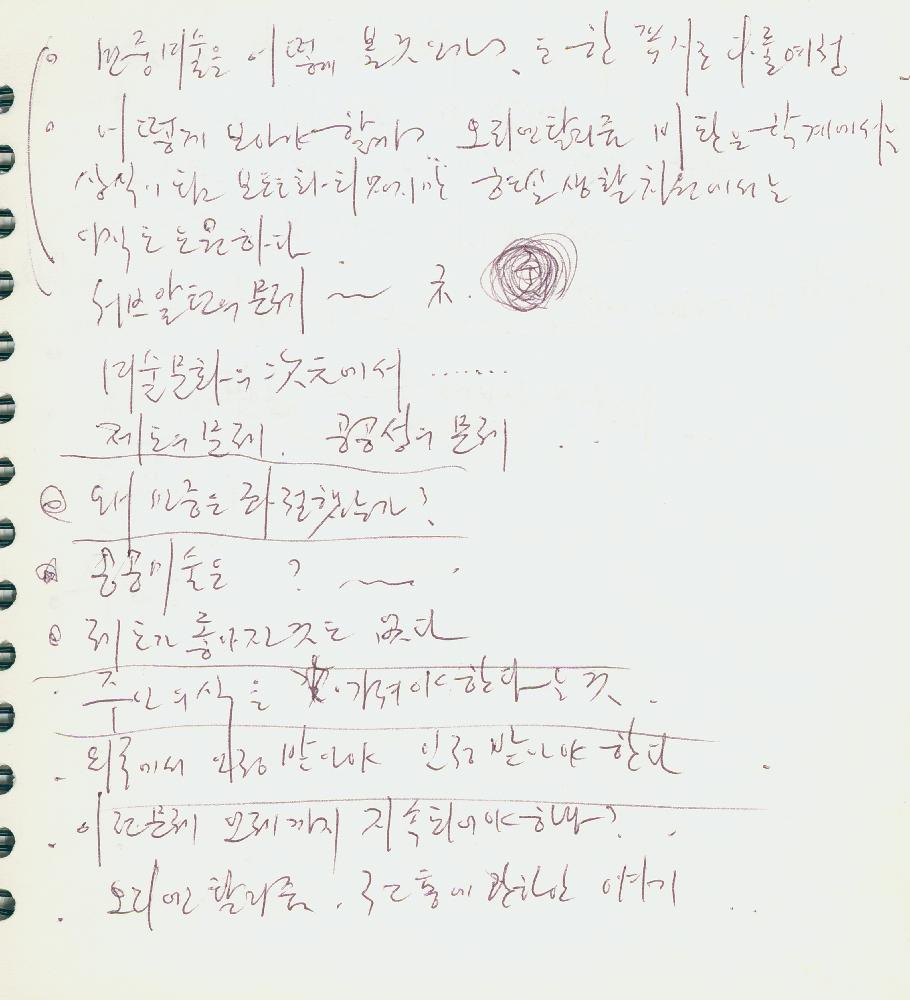 민중미술을 어떻게 볼것이냐, 는 한 꼭지로 다룰예정
어떻게 보아야 할까? 오리엔탈리즘 비판은 학계에서는
상식이 되고 보편화 되었지만 현실 생활 차원에서는
아직도 요원하다
서브알턴의 문제 ~ 즉.
미술문화의 次元에서 .......
제도의 문제. 공공성의 문제
왜 민중은 좌절했는가?
공공미술은 ? ~
제도가 좋아진것도 없다
주인의식을 가져야 한다는 것.
외국에서 인정받아야 인정 받아야 한다
이런문제 언제까지 지속되어야하나?
오리엔탈리즘. 에 관하안 이야기